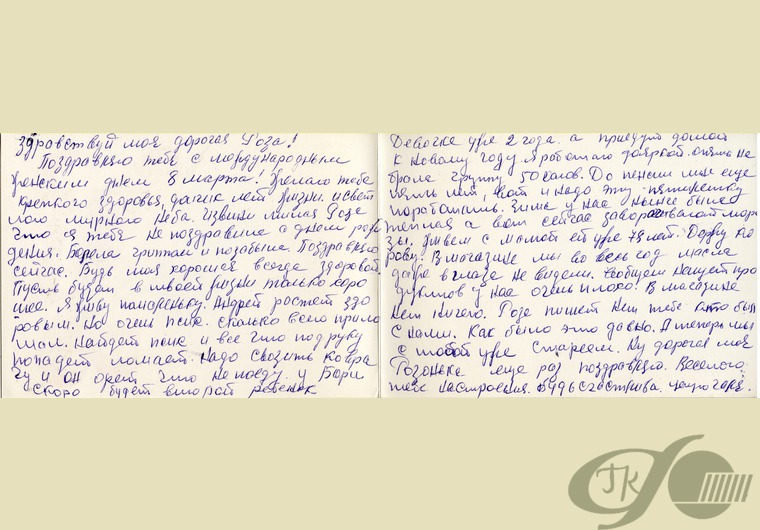 Здравствуй моя дорогая Роза!
Поздравляю тебя с международным
Женским днем 8 марта! Желаю тебе
крепкого здоровья, долгих лет жизни. и свет
лого мирного неба. Извини милая Роза
что я тебя не поздравила с днем рож
дения. Болела гриппом и позабыла. Поздравляю
сейчас. Будь моя хорошая всегда здоровой.
Пусть будит в твоей жизни только хоро
шее. Я живу помаленьку. Андрей ростет здо
ровым. Но очень псих. сколько всего
Найдет псих и все что под руку
попадет ломает. Надо свозить ко вра
чу и он орет что не поеду. у Бори
скоро будет второй ребенок
Девочке уже 2 года. а приедут домой
к Новому году. Я работаю дояркой. опять на
брала группу 50 голов. До пенсии мне еще
пять лет, вот и надо эту пятилетку
поработать. Зима у нас ныне была
теплая а вот сейчас заворачивают моро
зы. Живем с мамой ей уже 78 лет. Держу ко
рову. В магазине мы во весь год масла
даже в глаза не видели. Вообщем насчет про
дуктов у нас очень плохо. В магазине
нет ничего. Роза пишет нет тебе кто был
с нами. Как было это давно. А теперь мы
с тобой уже стареем. Ну дорогая моя
Розонька еще раз поздравляю. Веселого
тебе настроения. Будь счастлива.
ГК